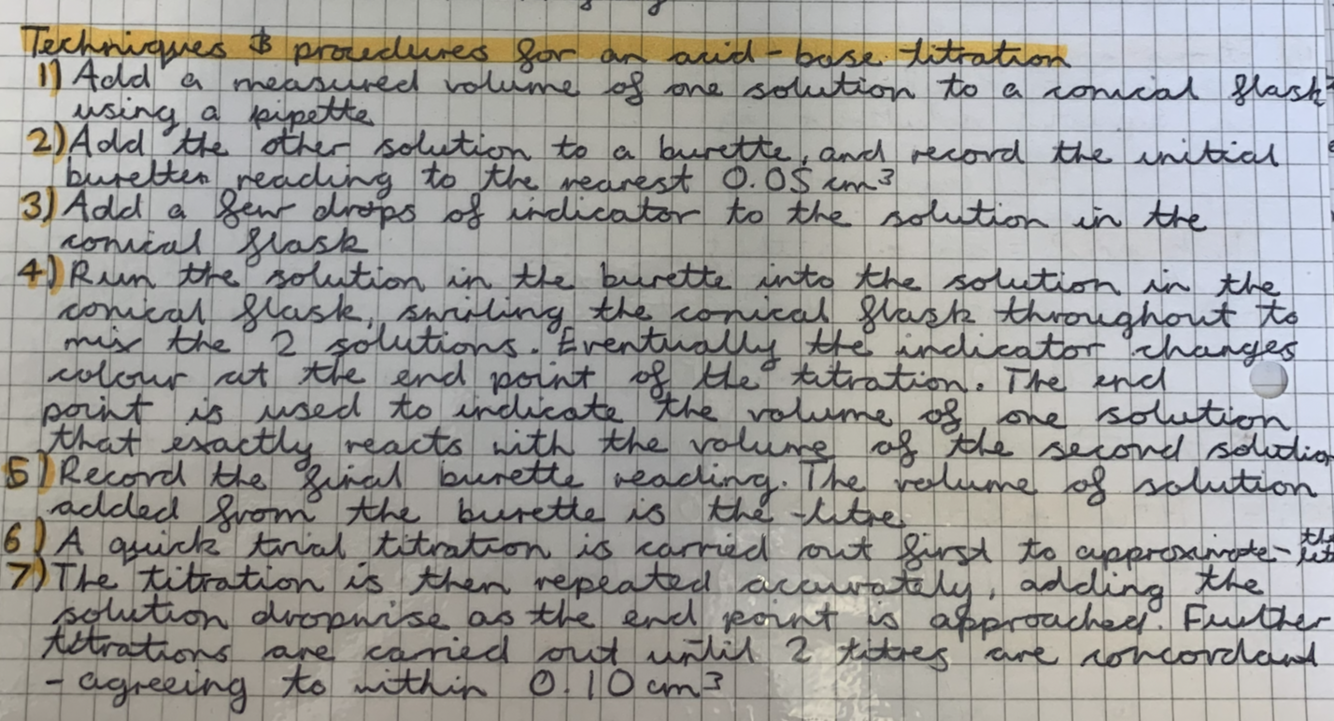 Techniques & procedures for an acid-base titration
1) Add a measured volume of one solution to a conical flask
using a pipette
2) Add the other solution to a burette, and record the initial
buretten reading to the nearest 0.05 cm³
3) Add a few drops of indicator to the solution in the
conical flask
4) Run the solution in the burette into the solution in the
conical flask, swirling the conical flask throughout to
mix the 2 solutions. Eventually the indicator changes
colour at the end point of the titration. The end
point is used to indicate the volume of one solution
that exactly reacts with the volume of the second solution
5) Record the final burette reading. The volume of solution
added from the burette is the titre
6) A quick trial titration is carried out first to approximate the
7) The titration is then repeated accurately, adding the
solution dropwise as the end point is approached. Further
titrations are carried out until 2 titres are concordant
- agreeing to within 0.10 cm³